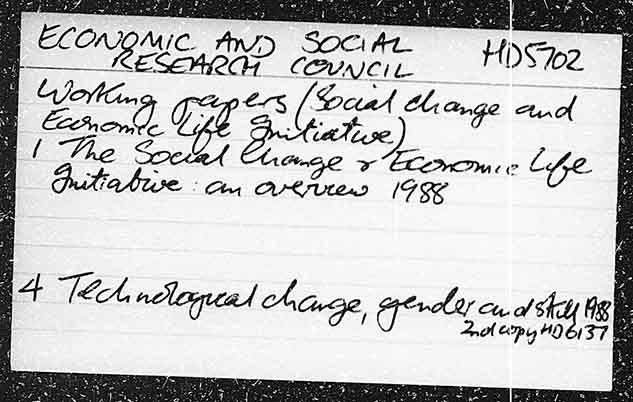 ECONOMIC AND SOCIAL HD5702
RESEARCH COUNCIL
Working papers (Social change and
Economic Life Initiative)
1 The Social Change & Economic Life
Initiative: an overview 1988
4 Technological change, gender and skill 1988
2nd copy HD6137